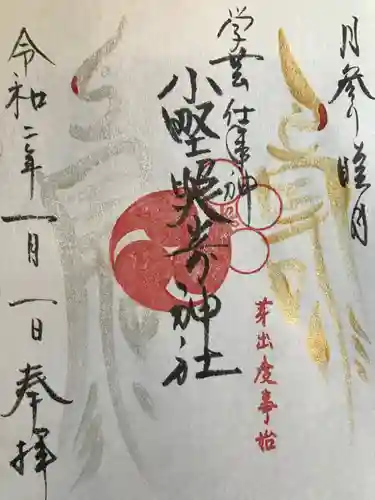 月参り睦月
学芸仕事神
小野照崎神社
芽出度事始
令和二年一月一日奉拝